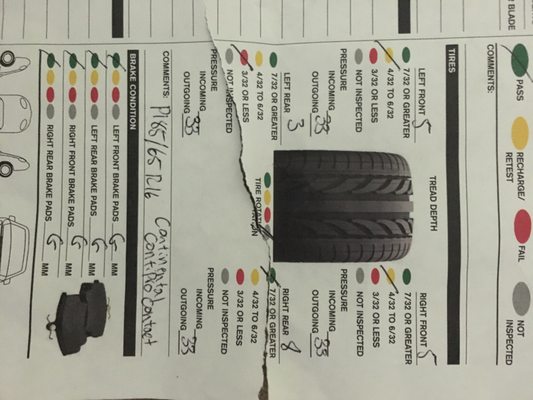 R BLADE
PASS RECHARGE/ RETEST FAIL NOT INSPECTED
COMMENTS:
TIRES
LEFT FRONT 5
7/32 OR GREATER
4/32 TO 6/32
3/32 OR LESS
NOT INSPECTED
PRESSURE
INCOMING
OUTGOING 33
TREAD DEPTH
RIGHT FRONT 5
7/32 OR GREATER
4/32 TO 6/32
3/32 OR LESS
NOT INSPECTED
PRESSURE
INCOMING
OUTGOING 33
LEFT REAR 3
7/32 OR GREATER
4/32 TO 6/32
3/32 OR LESS
NOT INSPECTED
PRESSURE
INCOMING
OUTGOING 33
TIRE ROTATION
RIGHT REAR 8
7/32 OR GREATER
4/32 TO 6/32
3/32 OR LESS
NOT INSPECTED
PRESSURE
INCOMING
OUTGOING 33
COMMENTS: P185/65 R16 Continental
ContiProContact
BRAKE CONDITION
LEFT FRONT BRAKE PADS MM
LEFT REAR BRAKE PADS MM
RIGHT FRONT BRAKE PADS MM
RIGHT REAR BRAKE PADS MM